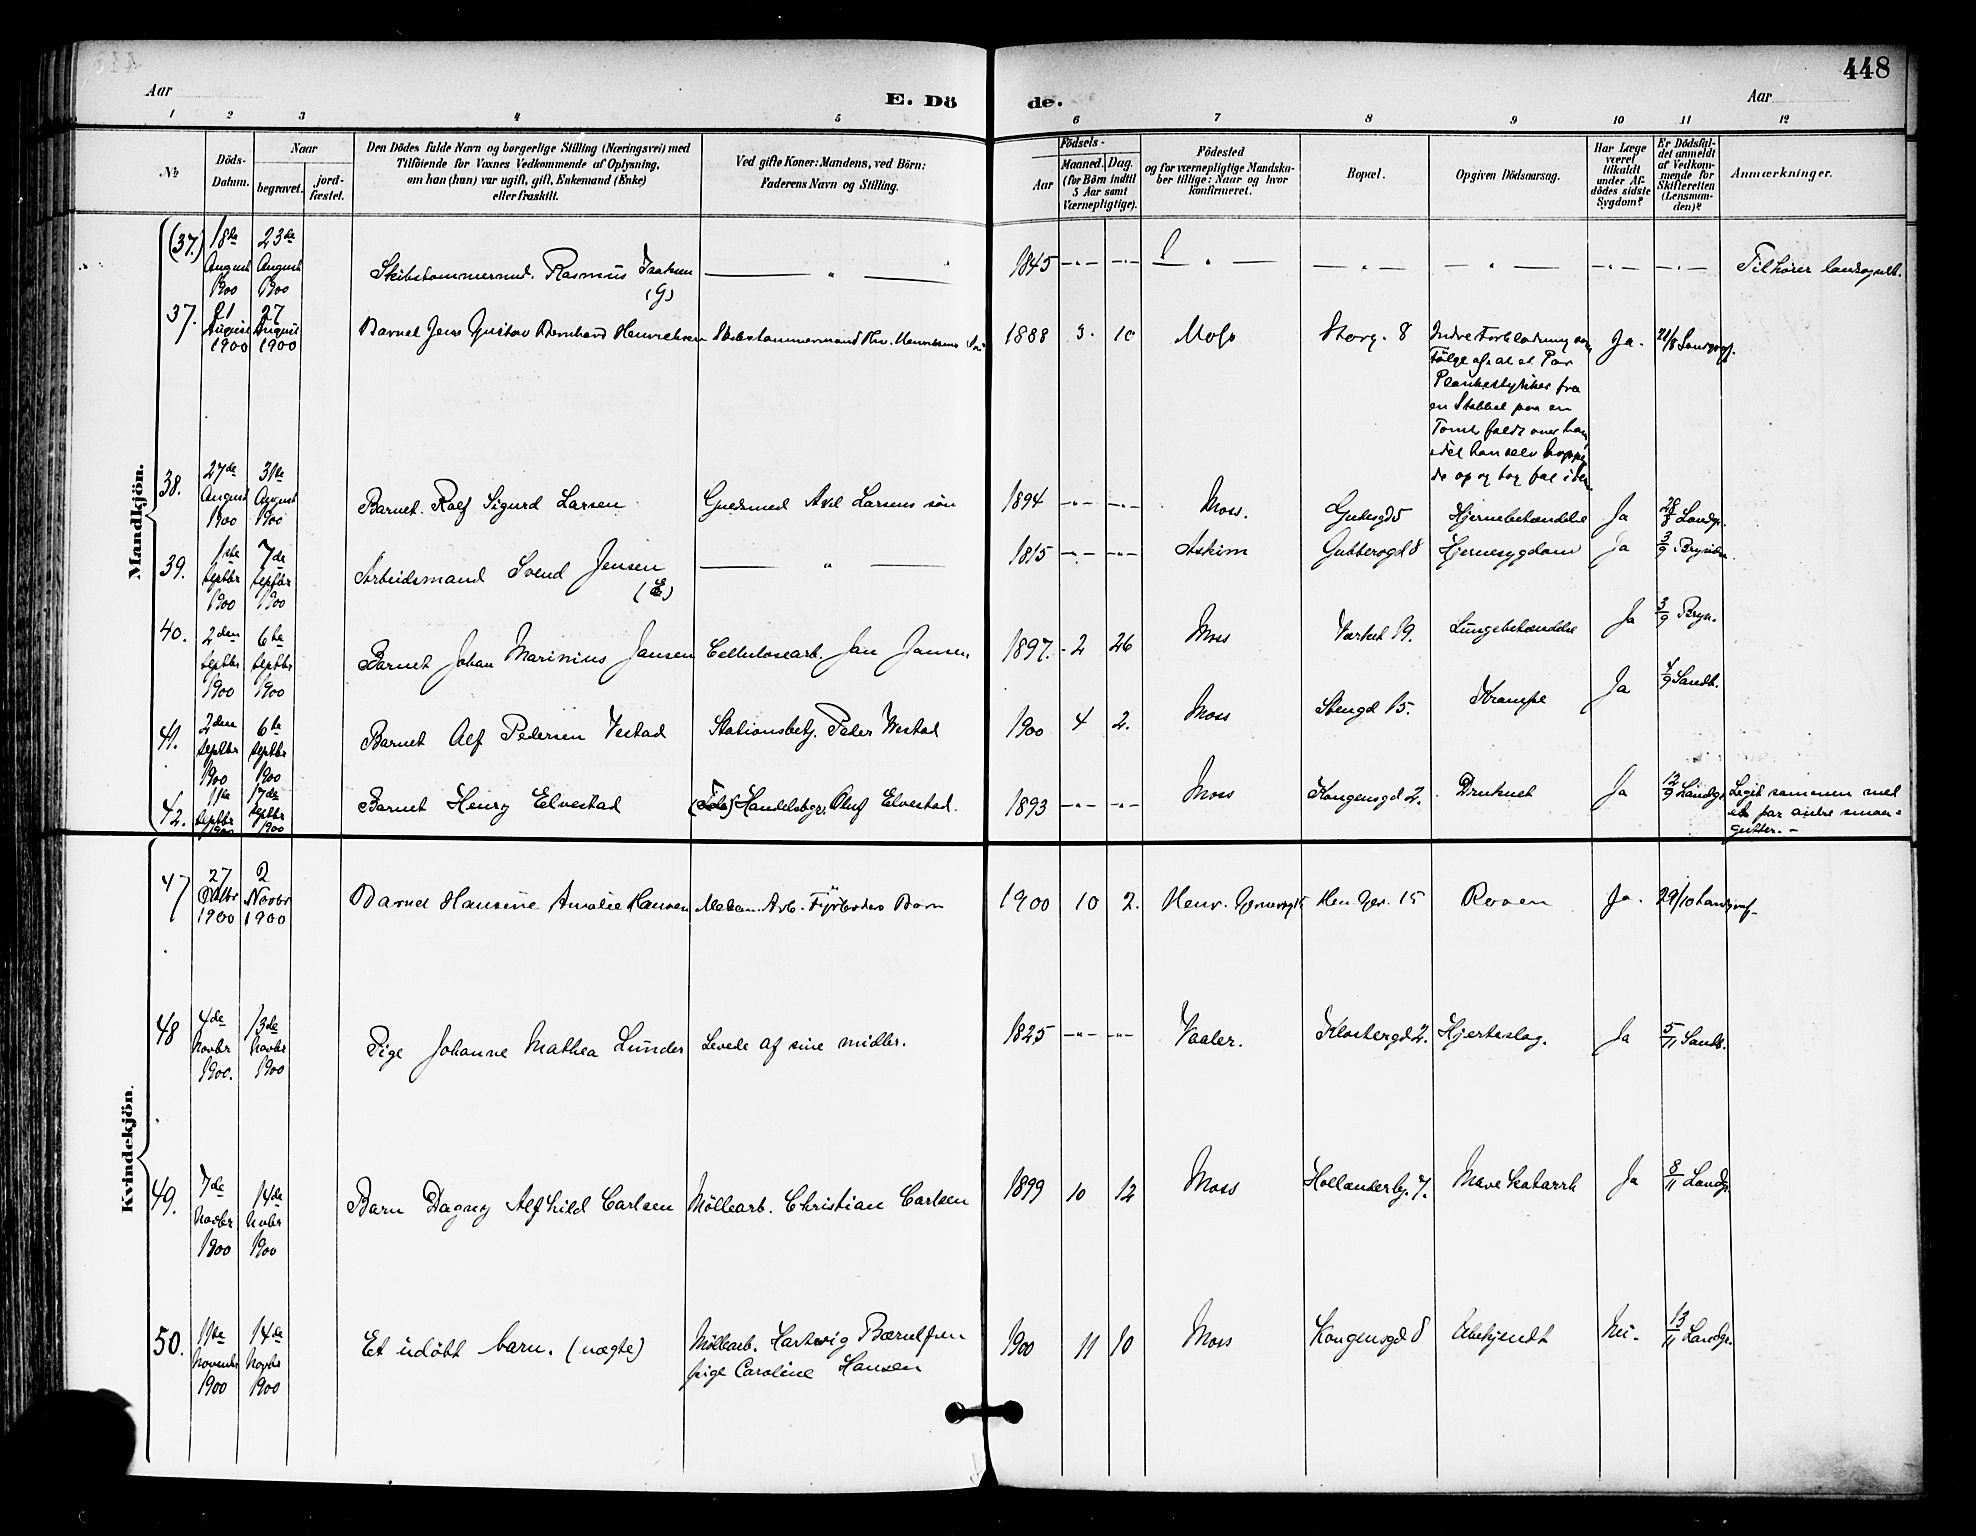 448
Aar
E. Dö
de.
Aar
1 2 3 4 5 6 7 8 9 10 11 12
No
Döds-
Datum.
Naar
begravet.
jord-
fæstet.
Den Dödes fulde Navn og borgerlige Stilling (Næringsvei) med
Tilföiende for Voxnes Vedkommende af Oplysning,
om han (hun) var ugift, gift, Enkemand (Enke)
eller fraskilt.
Ved gifte Koner: Mandens, ved Börn:
Faderens Navn og Stilling.
Födsels-
Aar
Maaned. Dag.
(for Börn indtil
5 Aar samt
Værnepligtige).
Födested
og for værnepligtige Mandska-
ber tillige: Naar og hvor
konfirmeret.
Bopæl.
Opgiven Dödsaarsag.
Har Læge
været
tilkaldt
under Af-
dödes sidste
Sygdom?
Er Dödsfal-
det anmeldt
af Vedkom-
mende for
Skifteretten
(Lensman-
den)?
Anmærkninger.
Mandkjön.
(37.) 18de August 1900 23de August 1900 Skibstømmermd. Rasmus Isaksen (G) — " — 1845 —"— —"— —"— —"— —"— —"— —"— Tilhører landsognet.
37. 21 August 1900 27 August 1900 Barnet Jens Gustav Bernhard Henrichsen Skibstømmermand Henrichsens 1888 3. 10 Moss Storg. 8 Indre Forblødning som
Følge af at et Par
Plankestykker fra
en Stabbel paa en
Tomt faldt over ham
idet han selv hoppe
de op og tog fat i den Ja. 21/8 Landgrf.
38. 27de August 1900 31te August 1900 Barnet Rolf Sigurd Larsen Guldsmed Axel Larsens søn 1894 —"— —"— Moss. Gudesgd 5 Hjernebetændelse Ja 28/8 Landgr.
39. 1ste Septbr 1900 7de Septbr 1900 Arbeidsmand Svend Jensen (E) — " — 1815 —"— —"— Askim Gubberogd 8 Hjernesygdom Ja 3/9
40. 2den Septbr 1900 6te Septbr 1900 Barnet Johan Marinius Jansen Cellulosearb. Jan Jansen 1897. 2 26 Moss Værket 19. Lungebetændelse Ja 3/9 Bryn.
41. 2den Septbr 1900 6te Septbr 1900 Barnet Alf Pedersen Vestad Stationsbetj. Peter Westad 1900 4 2. Moss Stengd 15. Krampe Ja 4/9 Sandb.
42. 11te Septbr 1900 17de Septbr 1900 Barnet Henry Elvestad Handelsbgr. Oluf Elvestad. 1893 —"— —"— Moss Kongensgd 2. Druknet Ja 12/9 Landgr. Leget sammen med
et par andre smaa-
gutter. –
Kvindekjön.
47 27 Oktbr 1900 2 Novbr 1900 Barnet Hansine Amalie Hansen Mekan. Arb. Barn 1900 10 2. Henr. Gernersgt Hen Ger. 15 Rosen Ja. 29/10 Landgraf.
48 4de Novbr 1900. 13de Novbr 1900 Pige Johanne Mathea Lunder Levede af sine midler. 1825 —"— —"— Vaaler. Klostergd 2. Hjerteslag. Ja 5/11 Sandb.
49. 7de Novbr 1900 14de Novbr 1900 Barn Dagny Alfhild Carlsen Møllearb. Christian Carlsen 1899 10 12 Moss Hollenderby. 7. Mave Katarrh Ja 8/11 Landgr.
50. 11te November 1900 14de Novbr 1900 Et udøbt barn. (uægte) Møllearb. Hartvig Bærulfsen
pige Caroline Hansen 1900 11 10 Moss Kongensgd 8 Ubekjendt Nei. 13/11 Landgr.